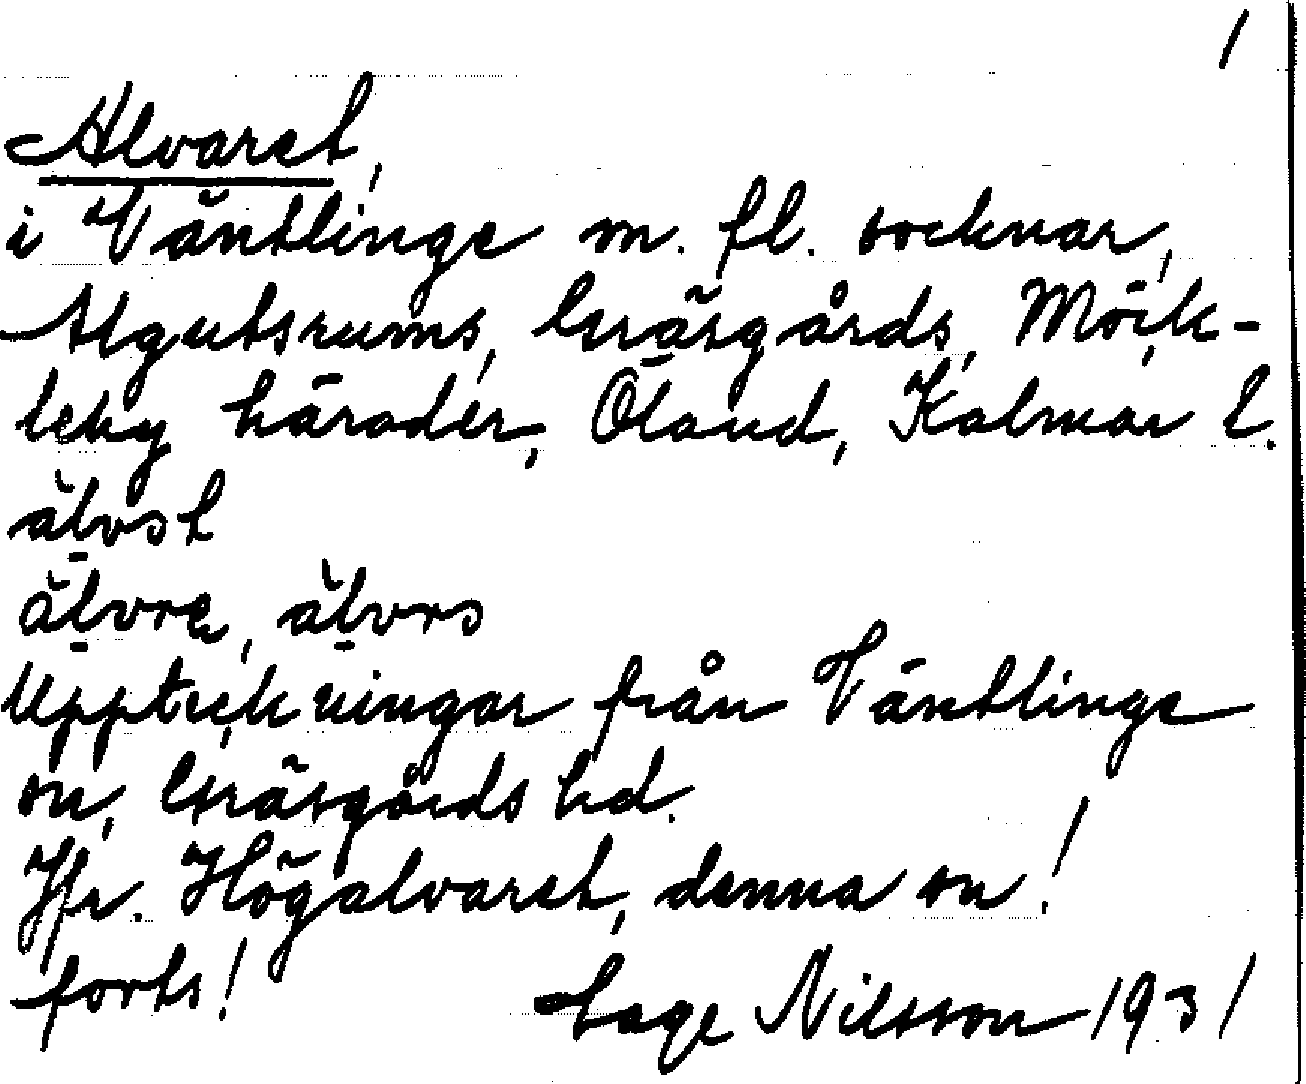 1
Alvaret,
i Väntlinge m. fl. socknar,
Algutsrums, Gräsgårds, Möck-
leby härader, Öland, Kalmar l.
älvst
älvre, älvrs
Uppteckningar från Väntlinge
sn, Gräsgårds hd.
Jfr. Högalvaret, denna sn!
forts! Sage Nilsson 1931